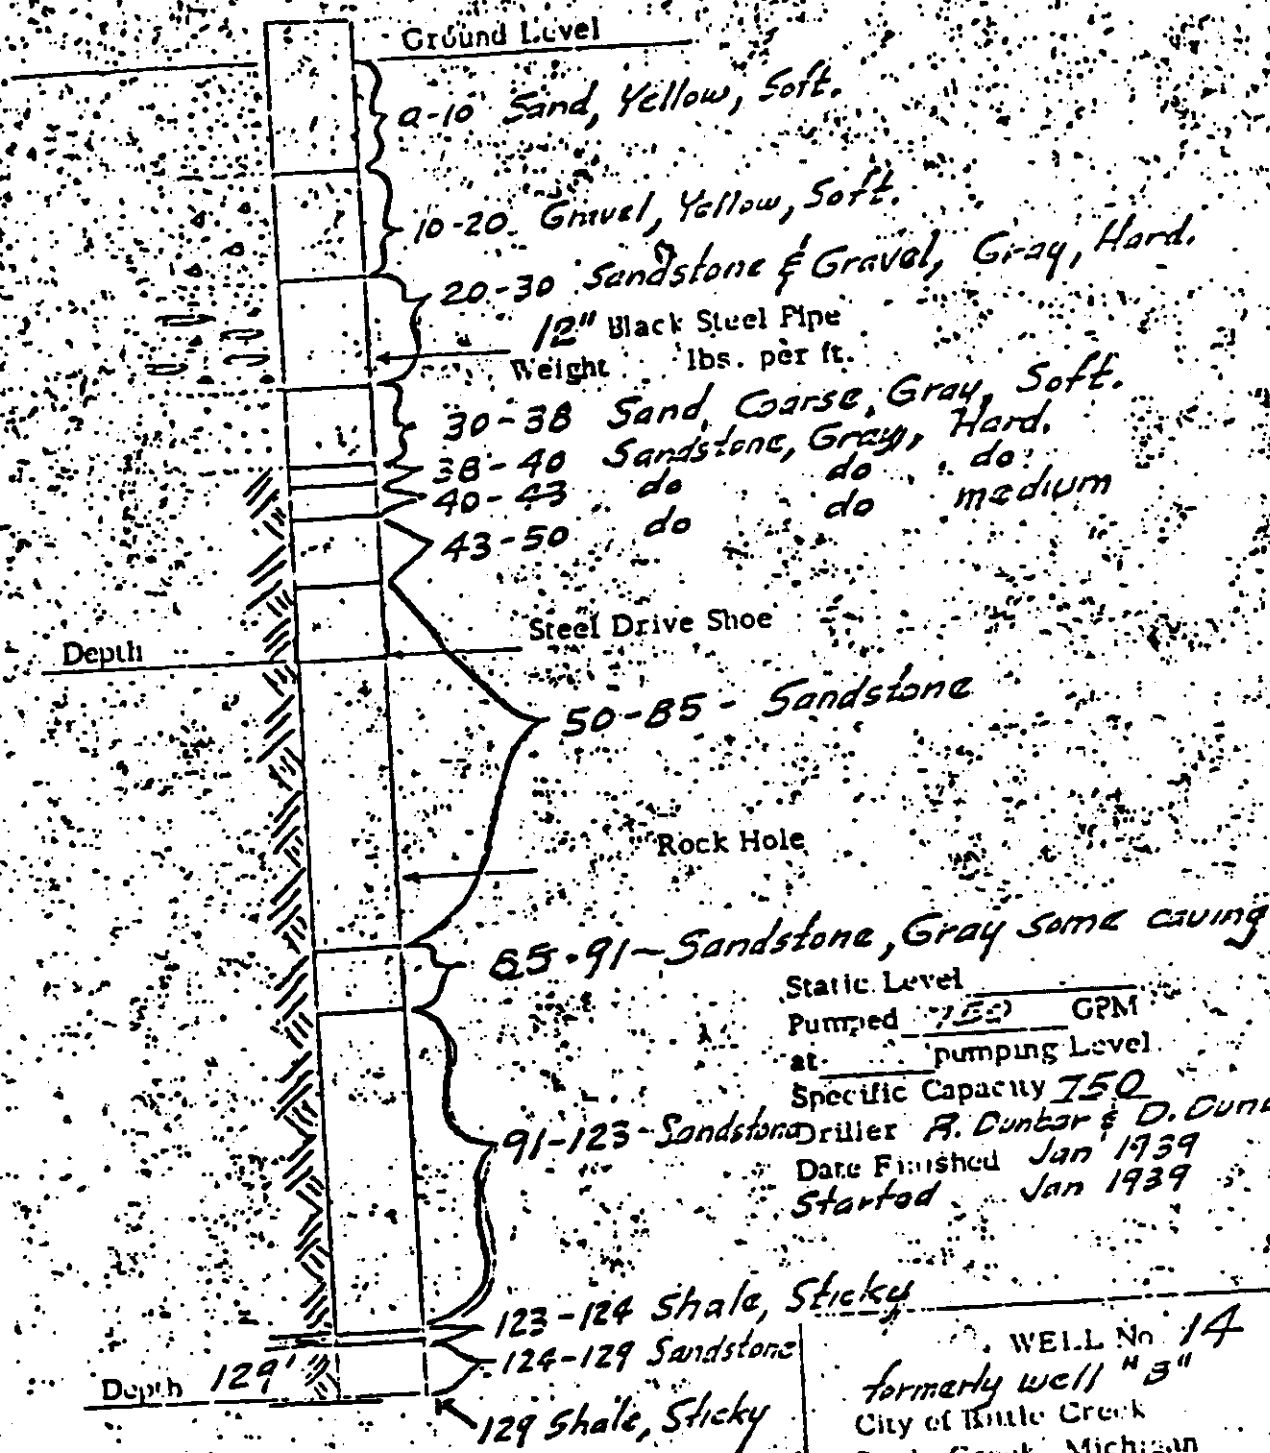 Ground Level
0-10 Sand, Yellow, Soft.
10-20 Gravel, Yellow, Soft.
20-30 Sandstone & Gravel, Gray, Hard.
12" Black Steel Pipe
Weight lbs. per ft.
30-38 Sand, Coarse, Gray, Soft.
38-40 Sandstone, Gray, Hard.
40-43 do do do
43-50 do do medium
Steel Drive Shoe
Depth
50-85 - Sandstone
Rock Hole
85-91 - Sandstone, Gray some caving
Static Level
Pumped 750 GPM
at pumping Level
Specific Capacity 750
91-123 - Sandstone
Driller R. Dunbar & D. Dun
Date Finished Jan 1939
Started Jan 1939
123-124 Shale, Sticky
124-129 Sandstone
Depth 129'
129 Shale, Sticky
WELL No. 14
formerly well "3"
City of Battle Creek
Creek, Michigan